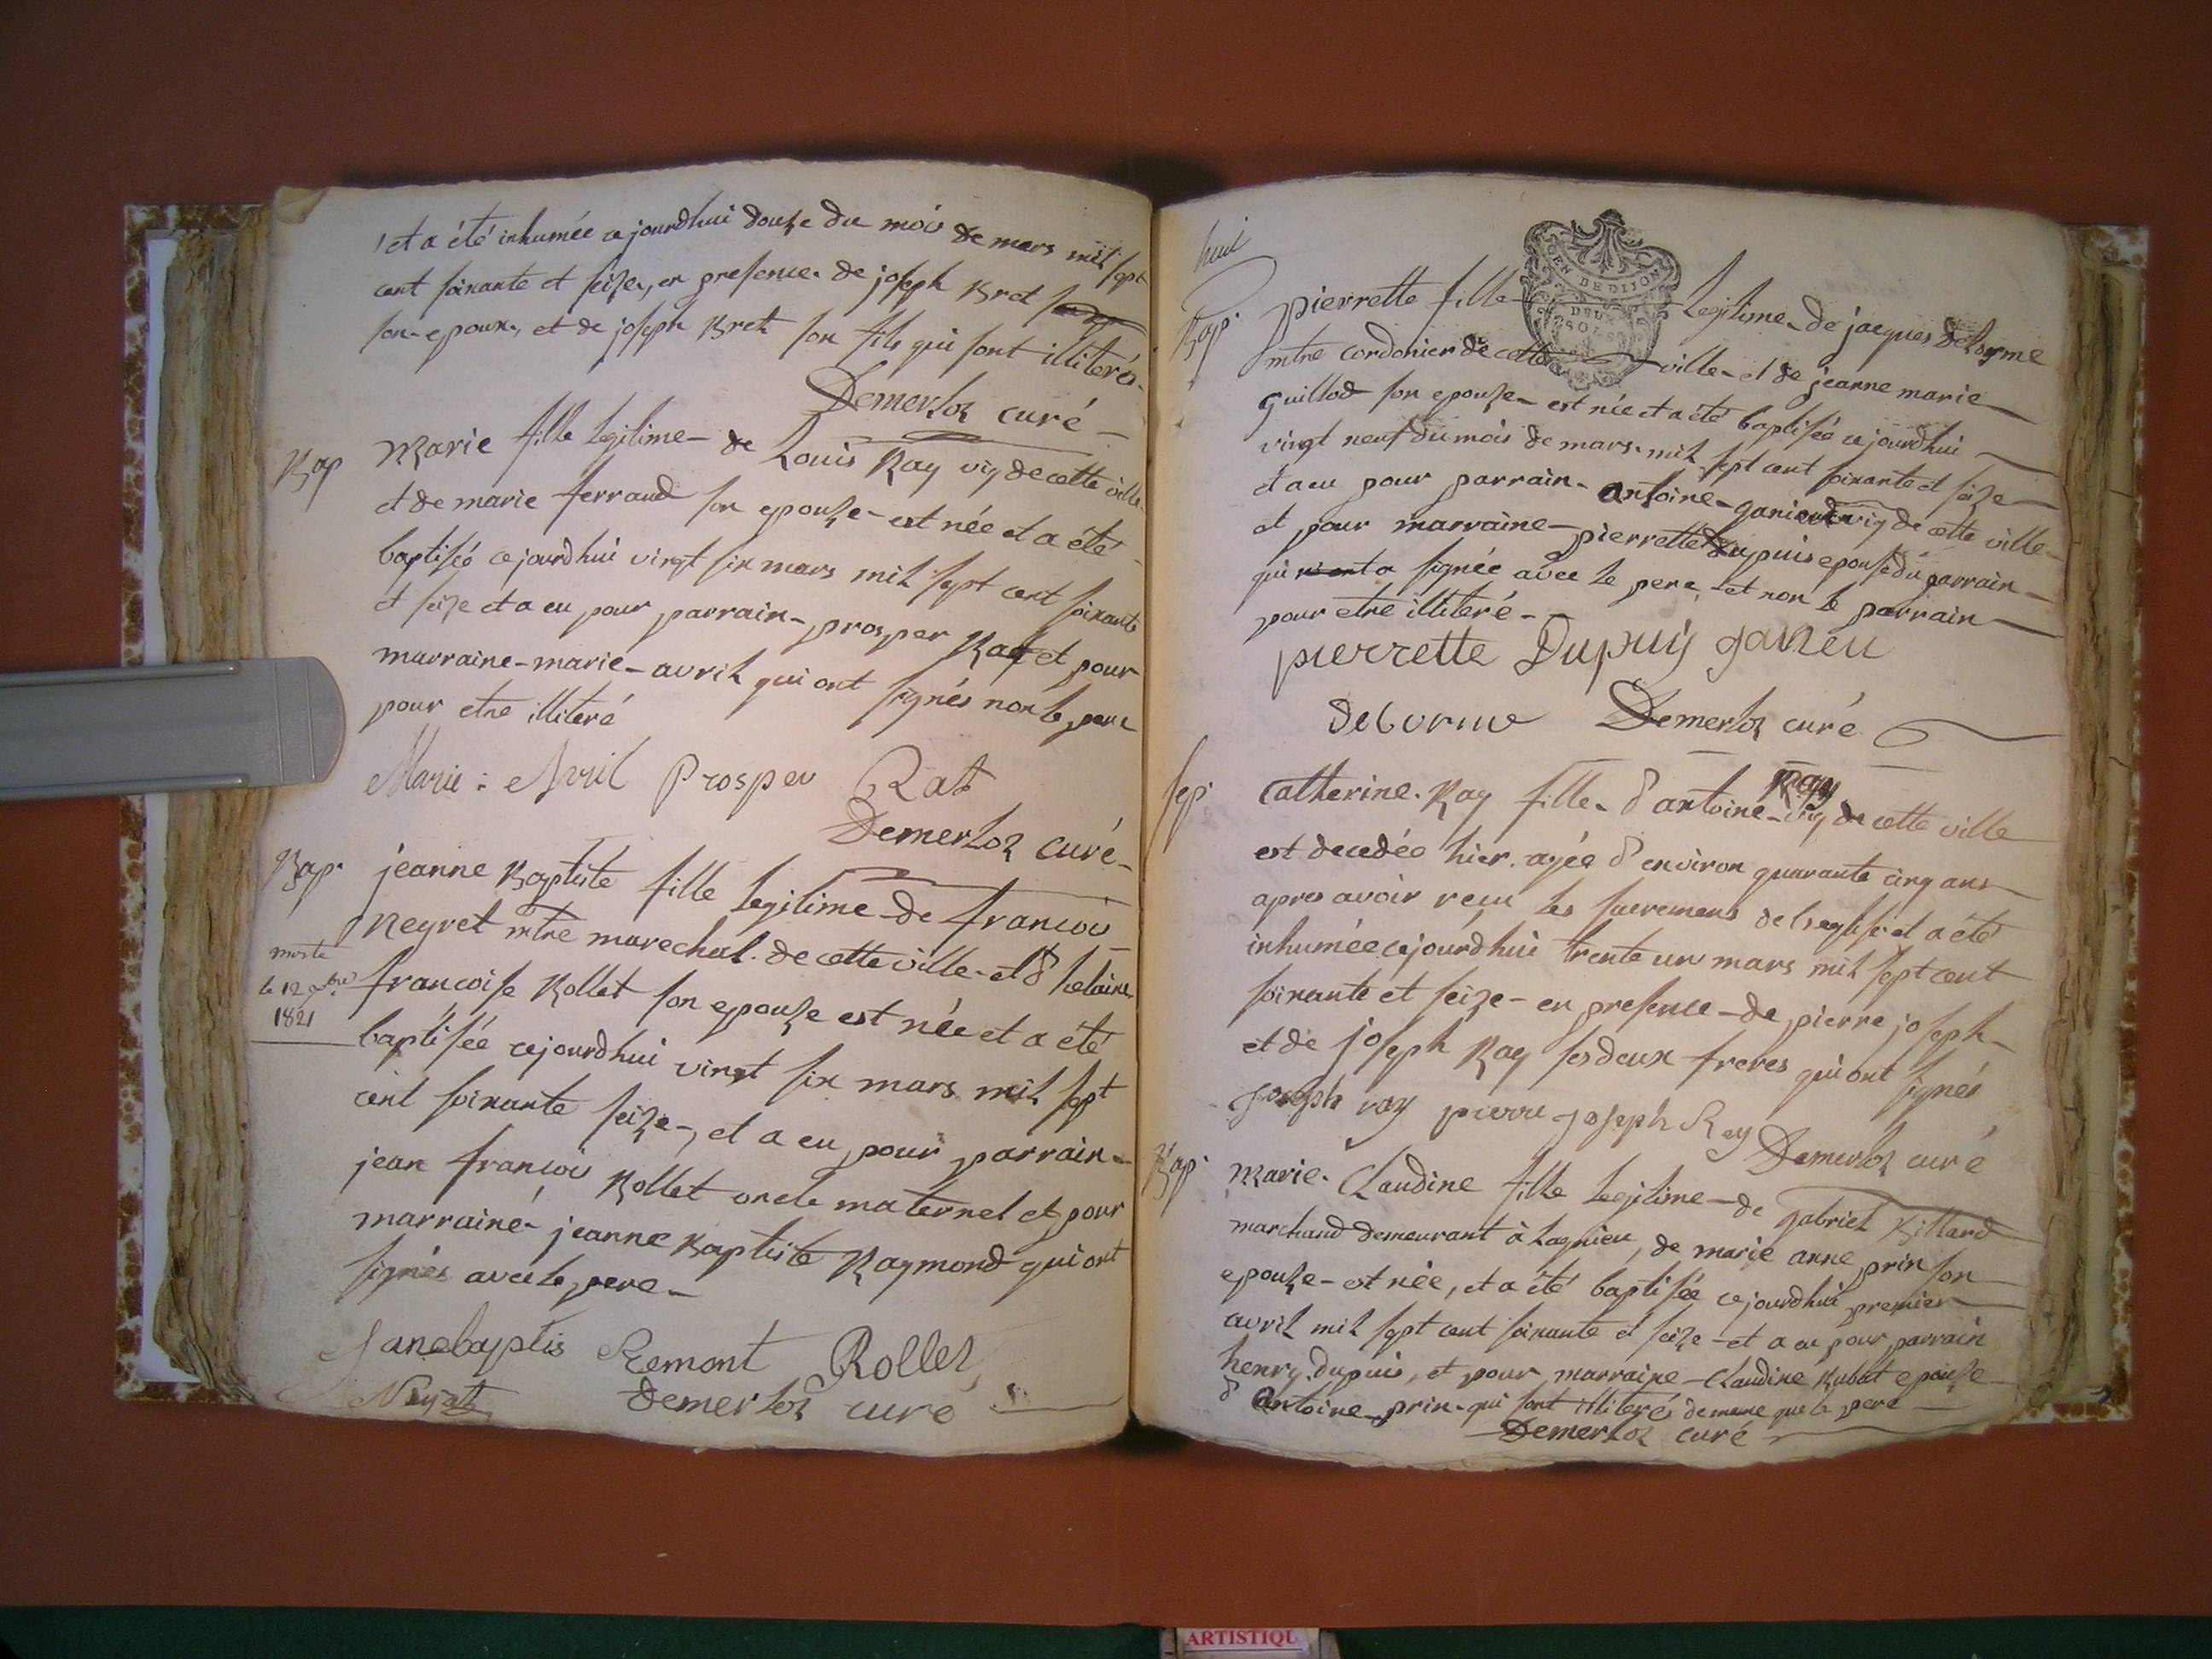 et a été inhumée cejourdhui douze du mois de mars mil sept
cent soixante et seize, en presence de joseph Bret
son epoux, et de joseph Bret son fils qui sont illiterés
Demerloz curé
Bap
Marie fille legitime de Louis Ray vig de cette ville
et de marie ferrand son epouze est née et a été
baptisée cejourdhui vingt six mars mil sept cent soixante
et seize et a eu pour parrain prosper Rat et pour
marraine marie avril qui ont signés non le pere
pour etre illiteré
Marie : Avril Prosper Rat
Demerloz curé
Bap.
jeanne Baptiste fille legitime de francois
Neyret mtre marechal de cette ville et d'helaine
morte
le 12 9bre
1821
francoise Rollet son epouze est née et a été
baptisée cejourdhui vingt six mars mil sept
cent soixante seize, et a eu pour parrain
jean francois Rollet oncle maternel et pour
marraine jeanne Baptiste Raymond qui ont
signés avec le pere
Janebaptis Remont Rollet
Neyret Demerloz curé
huit
GEN DE DIJON
DEUX
SOLS
Bap.
pierrette fille Legitime de jacques Delorme
mtre cordonier de cette ville et de jeanne marie
guillod son epouze est née et a été baptisée cejourdhui
vingt neuf du mois de mars mil sept cent soixante et seize
et a eu pour parrain antoine vig de cette ville
et pour marraine pierrette Dupuis epouse du parrain
qui a signée avec le pere, et non le parrain
pour etre illiteré
pierrette Dupuis ganeu
Delorme Demerloz curé
sep.
Catherine Ray fille d'antoine Ray vig de cette ville
est decedée hier agée d'environ quarante cinq ans
apres avoir reçu les sacremens de l'eglise et a été
inhumée cejourdhui trente un mars mil sept cent
soixante et seize en presence de pierre joseph
et de joseph Ray ses deux freres qui ont signés
Joseph ray pierre joseph Rey
Demerloz curé
Bap.
Marie Claudine fille legitime de gabriel Billard
marchand demeurant à Lagnieu, de marie anne prin son
epouze est née, et a été baptisée cejourdhui premier
avril mil sept cent soixante et seize et a eu pour parrain
henry dupuis, et pour marraine Claudine Rubat epouze
d'Antoine prin qui sont illiterés de meme que le pere
Demerloz curé
ARTISTIQU